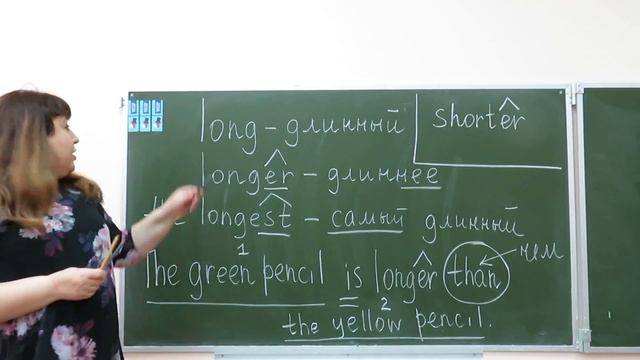 long - длинный
shorter
longer - длиннее
the longest - самый длинный
чем
1
The green pencil is longer than
2
the yellow pencil.